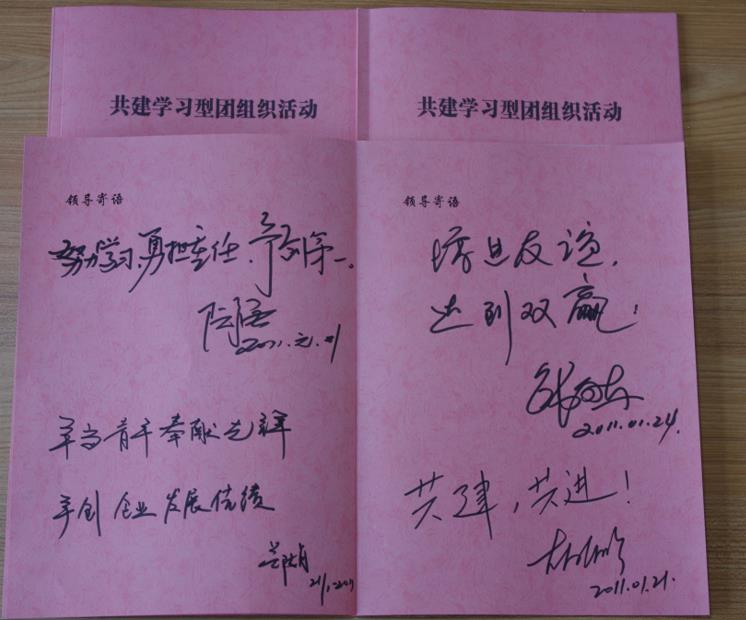 共建学习型团组织活动
共建学习型团组织活动
领导寄语
努力学习,勇担重任,争创第一。
领导寄语
增进友谊,
达到双赢!
2011.01.24.
争当青年奉献先锋
争创企业发展佳绩
共建,共进!
2011.01.21.